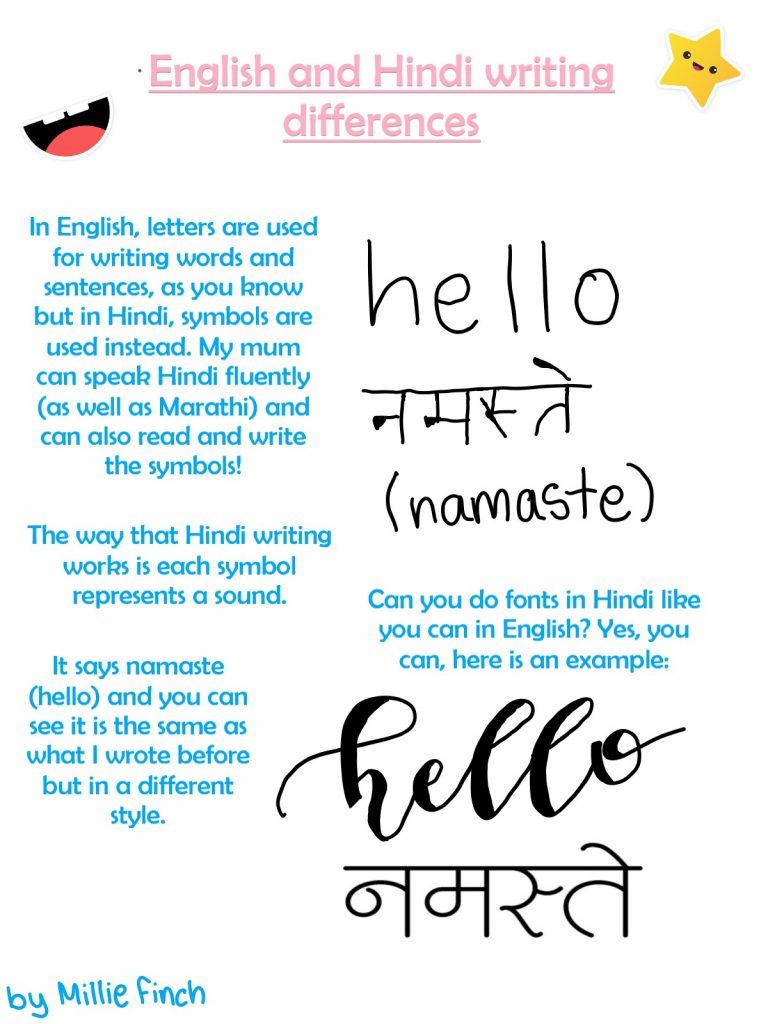 English and Hindi writing
differences
In English, letters are used
for writing words and
sentences, as you know
but in Hindi, symbols are
used instead. My mum
can speak Hindi fluently
(as well as Marathi) and
can also read and write
the symbols!
hello
नमस्ते
(namaste)
The way that Hindi writing
works is each symbol
represents a sound.
Can you do fonts in Hindi like
you can in English? Yes, you
can, here is an example:
It says namaste
(hello) and you can
see it is the same as
what I wrote before
but in a different
style.
hello
नमस्ते
by Millie Finch